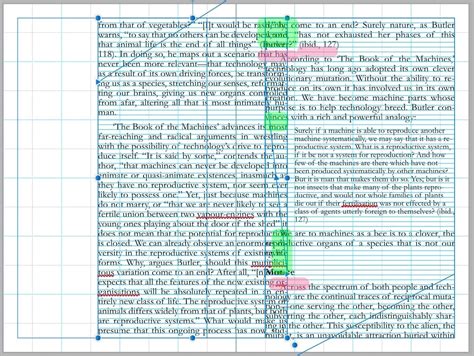 from that of vegetables?" "[I]t would be rash," he
warns, "to say that no others can be developed, and
that this animal life is the end of all things"
118). In doing so, he maps out a scenario that has
never been more relevant—that technology may,
as a result of its own driving forces, be transform-
ing us as a species, stretching our senses, reformat-
ting our brains, giving us new organs controlled
from afar, altering all that is most intimately hu-
man.
'The Book of the Machines' advances its most
far-reaching and radical arguments in wrestling
with the possibility of technology's drive to repro-
duce itself. "It is said by some," contends the au-
thor, "that machines can never be developed into
animate or quasi-animate existences, inasmuch as
they have no reproductive system, nor seem ever
likely to possess one." Yet, just because machines
do not marry, or "that we are never likely to see a
fertile union between two vapour-engines with the
young ones playing about the door of the shed" it
does not mean that the potential for reproduction
is closed. We can already observe an enormous di-
versity in the reproductive systems of existing life-
forms. Why, argues Butler, should this multiplici-
tous variation come to an end? After all, "[n]o one
expects that all the features of the now existing or-
ganisations will be absolutely repeated in an en-
tirely new class of life. The reproductive system of
animals differs widely from that of plants, but both
are reproductive systems." What would make us
presume that this ongoing process has now
come to an end? Surely nature, as Butler
"has not exhausted her phases of this
(ibid., 127)
According to 'The Book of the Machines,'
technology has long ago adopted its own clever
evolutionary mutation. Without the ability to re-
produce on its own it has involved us in its own
creation. We have become machine parts whose
purpose is to help technology breed. Butler con-
vinces with a rich and powerful analogy:
Surely if a machine is able to reproduce another
machine systematically, we may say that it has a re-
productive system. What is a reproductive system,
if it be not a system for reproduction? And how
few of the machines are there which have not
been produced systematically by other machines?
But it is man that makes them do so. Yes; but is it
not insects that make many of the plants repro-
ductive, and would not whole families of plants
die out if their fertilisation was not effected by a
class of agents utterly foreign to themselves? (ibid.,
127)
We are to machines as a bee is to a clover, the
reproductive organs of a species that is not our
own.
Across the spectrum of both people and tech-
nology are the continual traces of reciprocal muta-
tion—one serving the other, becoming the other,
subverting the other, each indistinguishably shar-
ing in the other. This susceptibility to the alien, the
mutual, is an unavoidable attraction buried within